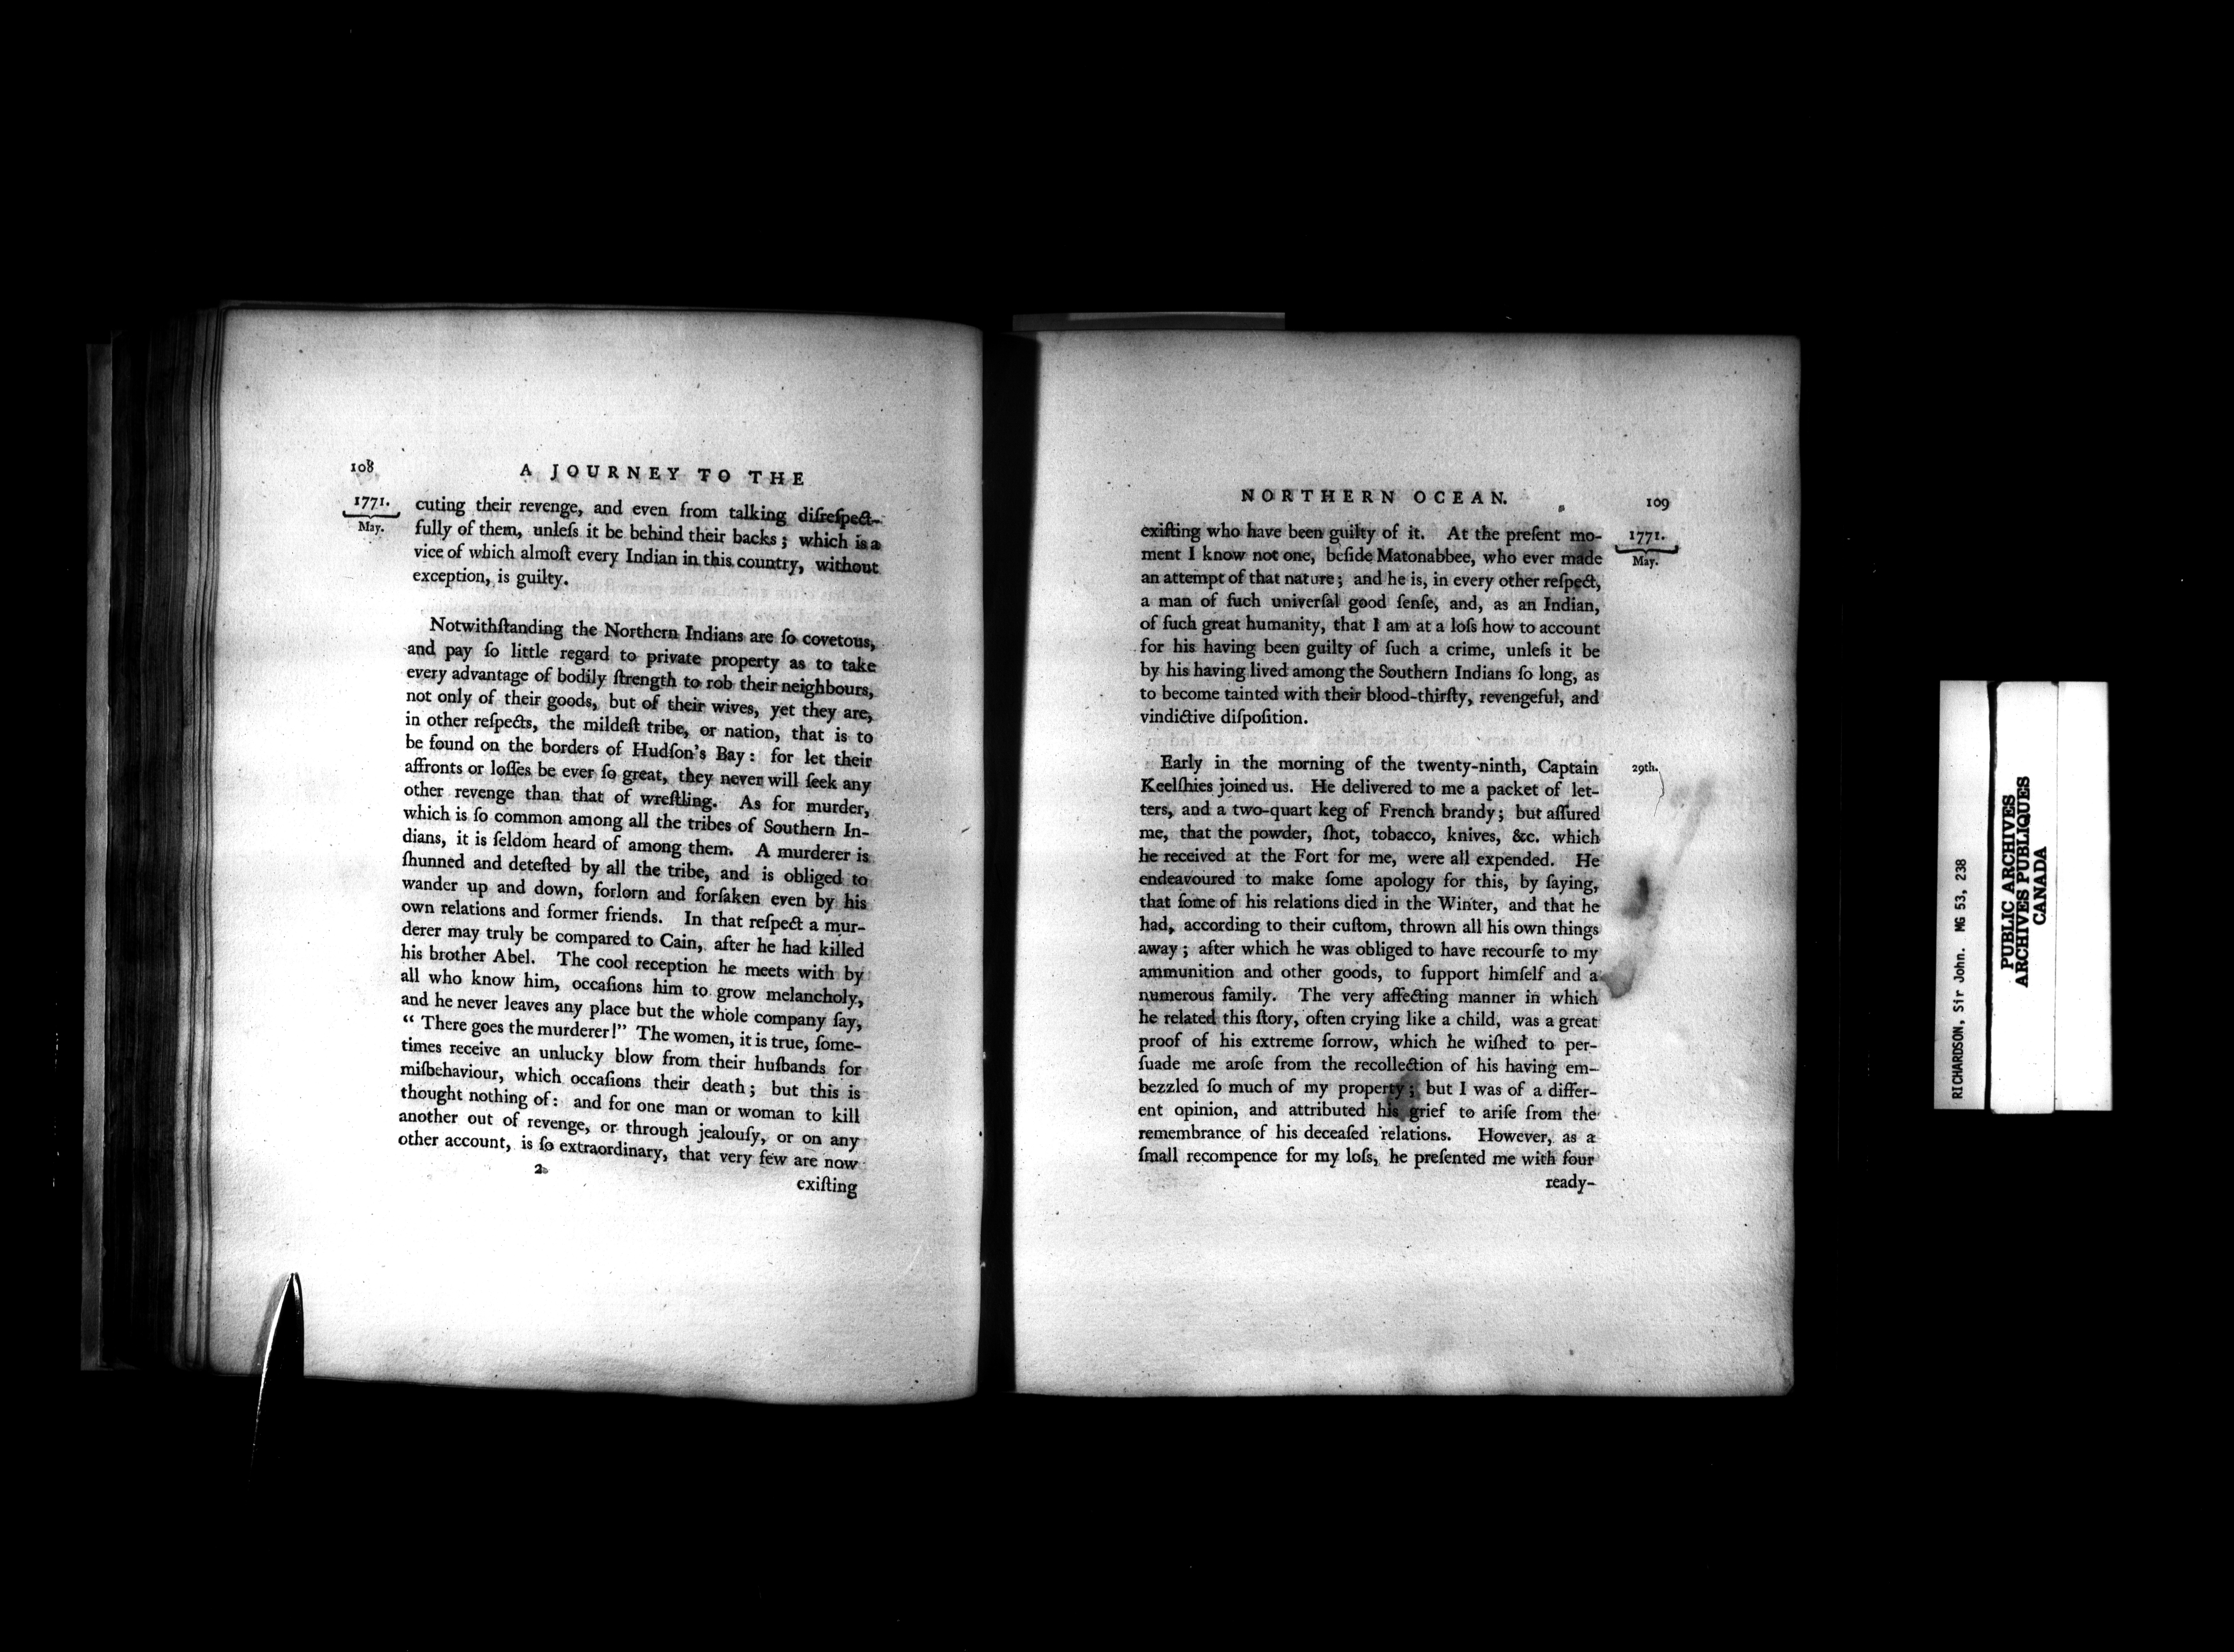 108
A JOURNEY TO THE
1771.
May.
cuting their revenge, and even from talking diſreſpect-
fully of them, unleſs it be behind their backs; which is a
vice of which almoſt every Indian in this country, without
exception, is guilty.
Notwithſtanding the Northern Indians are ſo covetous,
and pay ſo little regard to private property as to take
every advantage of bodily ſtrength to rob their neighbours,
not only of their goods, but of their wives, yet they are,
in other reſpects, the mildeſt tribe, or nation, that is to
be found on the borders of Hudſon's Bay: for let their
affronts or loſſes be ever ſo great, they never will ſeek any
other revenge than that of wreſtling. As for murder,
which is ſo common among all the tribes of Southern In-
dians, it is ſeldom heard of among them. A murderer is
ſhunned and deteſted by all the tribe, and is obliged to
wander up and down, forlorn and forſaken even by his
own relations and former friends. In that reſpect a mur-
derer may truly be compared to Cain, after he had killed
his brother Abel. The cool reception he meets with by
all who know him, occaſions him to grow melancholy,
and he never leaves any place but the whole company ſay,
“ There goes the murderer!” The women, it is true, ſome-
times receive an unlucky blow from their huſbands for
miſbehaviour, which occaſions their death; but this is
thought nothing of: and for one man or woman to kill
another out of revenge, or through jealouſy, or on any
other account, is ſo extraordinary, that very few are now
2
exiſting
NORTHERN OCEAN.
109
1771.
May.
exiſting who have been guilty of it. At the preſent mo-
ment I know not one, beſide Matonabbee, who ever made
an attempt of that nature; and he is, in every other reſpect,
a man of ſuch univerſal good ſenſe, and, as an Indian,
of ſuch great humanity, that I am at a loſs how to account
for his having been guilty of ſuch a crime, unleſs it be
by his having lived among the Southern Indians ſo long, as
to become tainted with their blood-thirſty, revengeful, and
vindictive diſpoſition.
Early in the morning of the twenty-ninth, Captain
29th.
Keelſhies joined us. He delivered to me a packet of let-
ters, and a two-quart keg of French brandy; but aſſured
me, that the powder, ſhot, tobacco, knives, &c. which
he received at the Fort for me, were all expended. He
endeavoured to make ſome apology for this, by ſaying,
that ſome of his relations died in the Winter, and that he
had, according to their cuſtom, thrown all his own things
away; after which he was obliged to have recourſe to my
ammunition and other goods, to ſupport himſelf and a
numerous family. The very affecting manner in which
he related this ſtory, often crying like a child, was a great
proof of his extreme ſorrow, which he wiſhed to per-
ſuade me aroſe from the recollection of his having em-
bezzled ſo much of my property; but I was of a differ-
ent opinion, and attributed his grief to ariſe from the
remembrance of his deceaſed relations. However, as a
ſmall recompence for my loſs, he preſented me with four
ready-
RICHARDSON, Sir John. MG 53, 238
PUBLIC ARCHIVES
ARCHIVES PUBLIQUES
CANADA